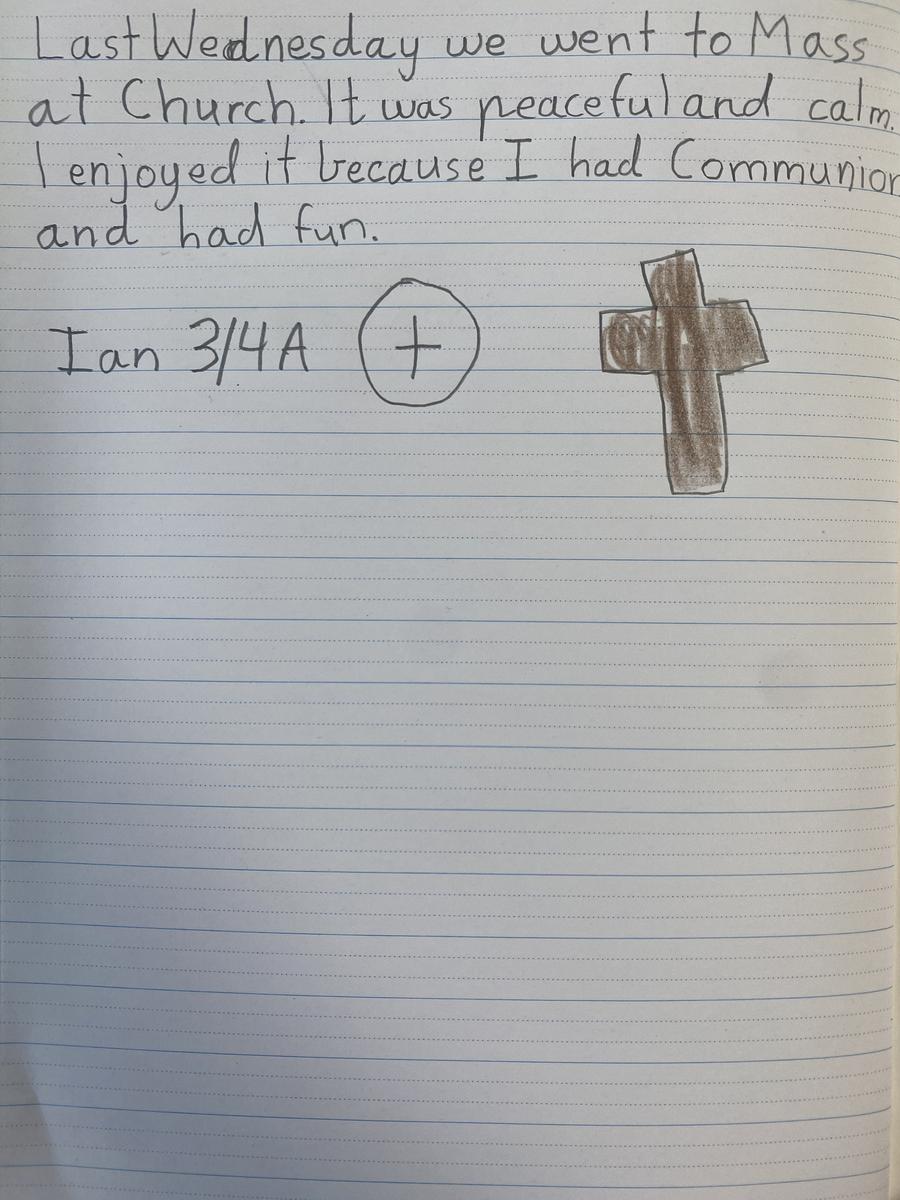 Last Wednesday we went to Mass
at Church. It was peaceful and calm.
I enjoyed it because I had Communion
and had fun.
Ian 3/4A